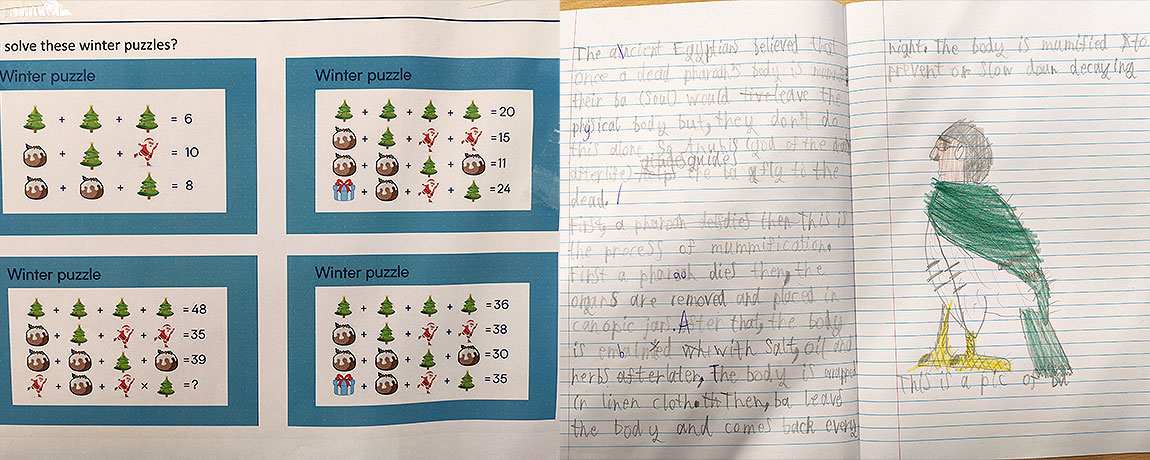 solve these winter puzzles?
Winter puzzle
+ + = 6
+ + = 10
+ + = 8
Winter puzzle
+ + + =20
+ + + =15
+ + + =11
+ + + =24
Winter puzzle
+ + + =48
+ + + =35
+ + + =39
+ + × =?
Winter puzzle
+ + + =36
+ + + =38
+ + + =30
+ + + =35
The ancient Egyptian believed that
once a dead pharaoh's body is
their ba (soul) would leave the
physical body but, they don't do
this alone. So Anubis (god of the
afterlife) guides the ba to the
dead. /
First, a pharaoh dies then This is
the process of mummification.
First a pharaoh dies then, the
organs are removed and placed in
canopic jars. After that, the body
is embalmed with salt, oil and
herbs after later, The body is wrapped
in linen cloth. Then, ba leave
the body and comes back every
night. The body is mumified to
prevent or slow down decaying
This is a pic of ba